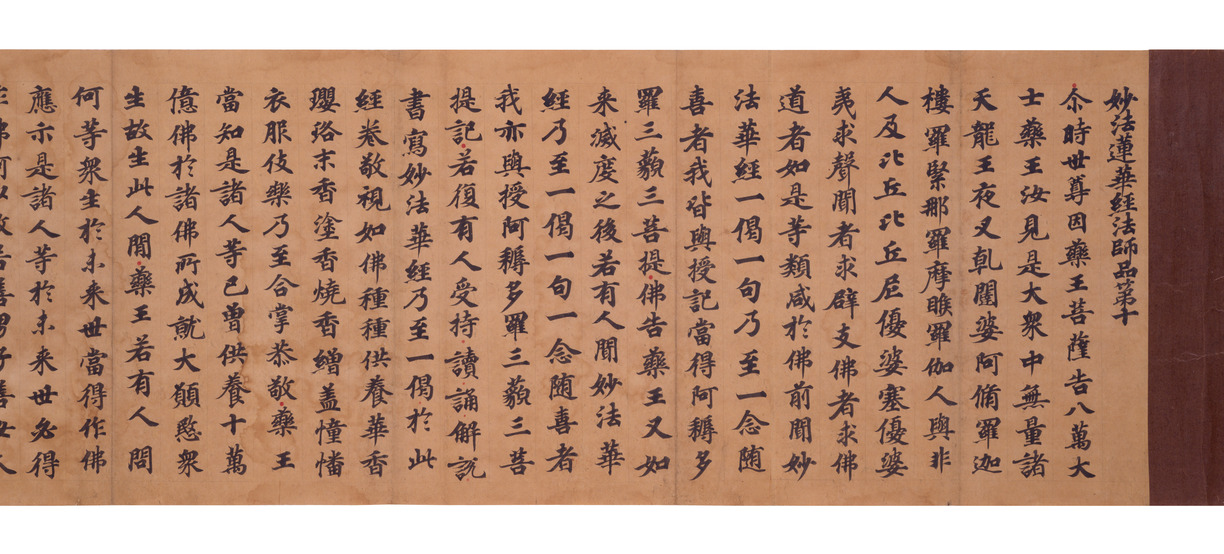 妙法蓮華經法師品第十
尒時世尊因藥王菩薩告八萬大
士藥王汝見是大衆中無量諸
天龍王夜叉乹闥婆阿脩羅迦
樓羅緊那羅摩睺羅伽人與非
人及比丘比丘尼優婆塞優婆
夷求聲聞者求辟支佛者求佛
道者如是等類咸於佛前聞妙
法華經一偈一句乃至一念随
喜者我皆與授記當得阿耨多
羅三藐三菩提佛告藥王又如
来滅度之後若有人聞妙法華
經乃至一偈一句一念随喜者
我亦與授阿耨多羅三藐三菩
提記若復有人受持讀誦解説
書寫妙法華經乃至一偈於此
經卷敬視如佛種種供養華香
瓔珞末香塗香燒香繒盖幢幡
衣服伎樂乃至合掌恭敬藥王
當知是諸人等已曽供養十萬
億佛於諸佛所成就大願愍衆
生故生此人間藥王若有人問
何等衆生於未来世當得作佛
應示是諸人等於未来世必得